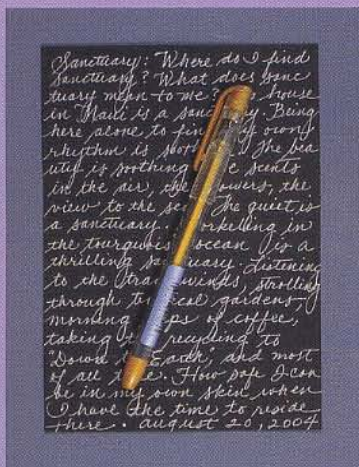 Sanctuary: Where do I find
Sanctuary? What does sanc
tuary mean to me? house
in Maui is a sanc y. Being
here alone to fin y own
rhythm is soot The bea
uty is soothing e scents
in the air, the owers, the
view to the sea he quiet is
a sanctuary. orkeling in
the tourquois ocean is a
thrilling sa uary. Listening
to the trad winds, strolling
through t ical gardens,
morning ps of coffee,
taking recycling to
"Down t Earth," and most
of all t e. How safe I can
be in my own skin when
I have the time to reside
there. august 20, 2004